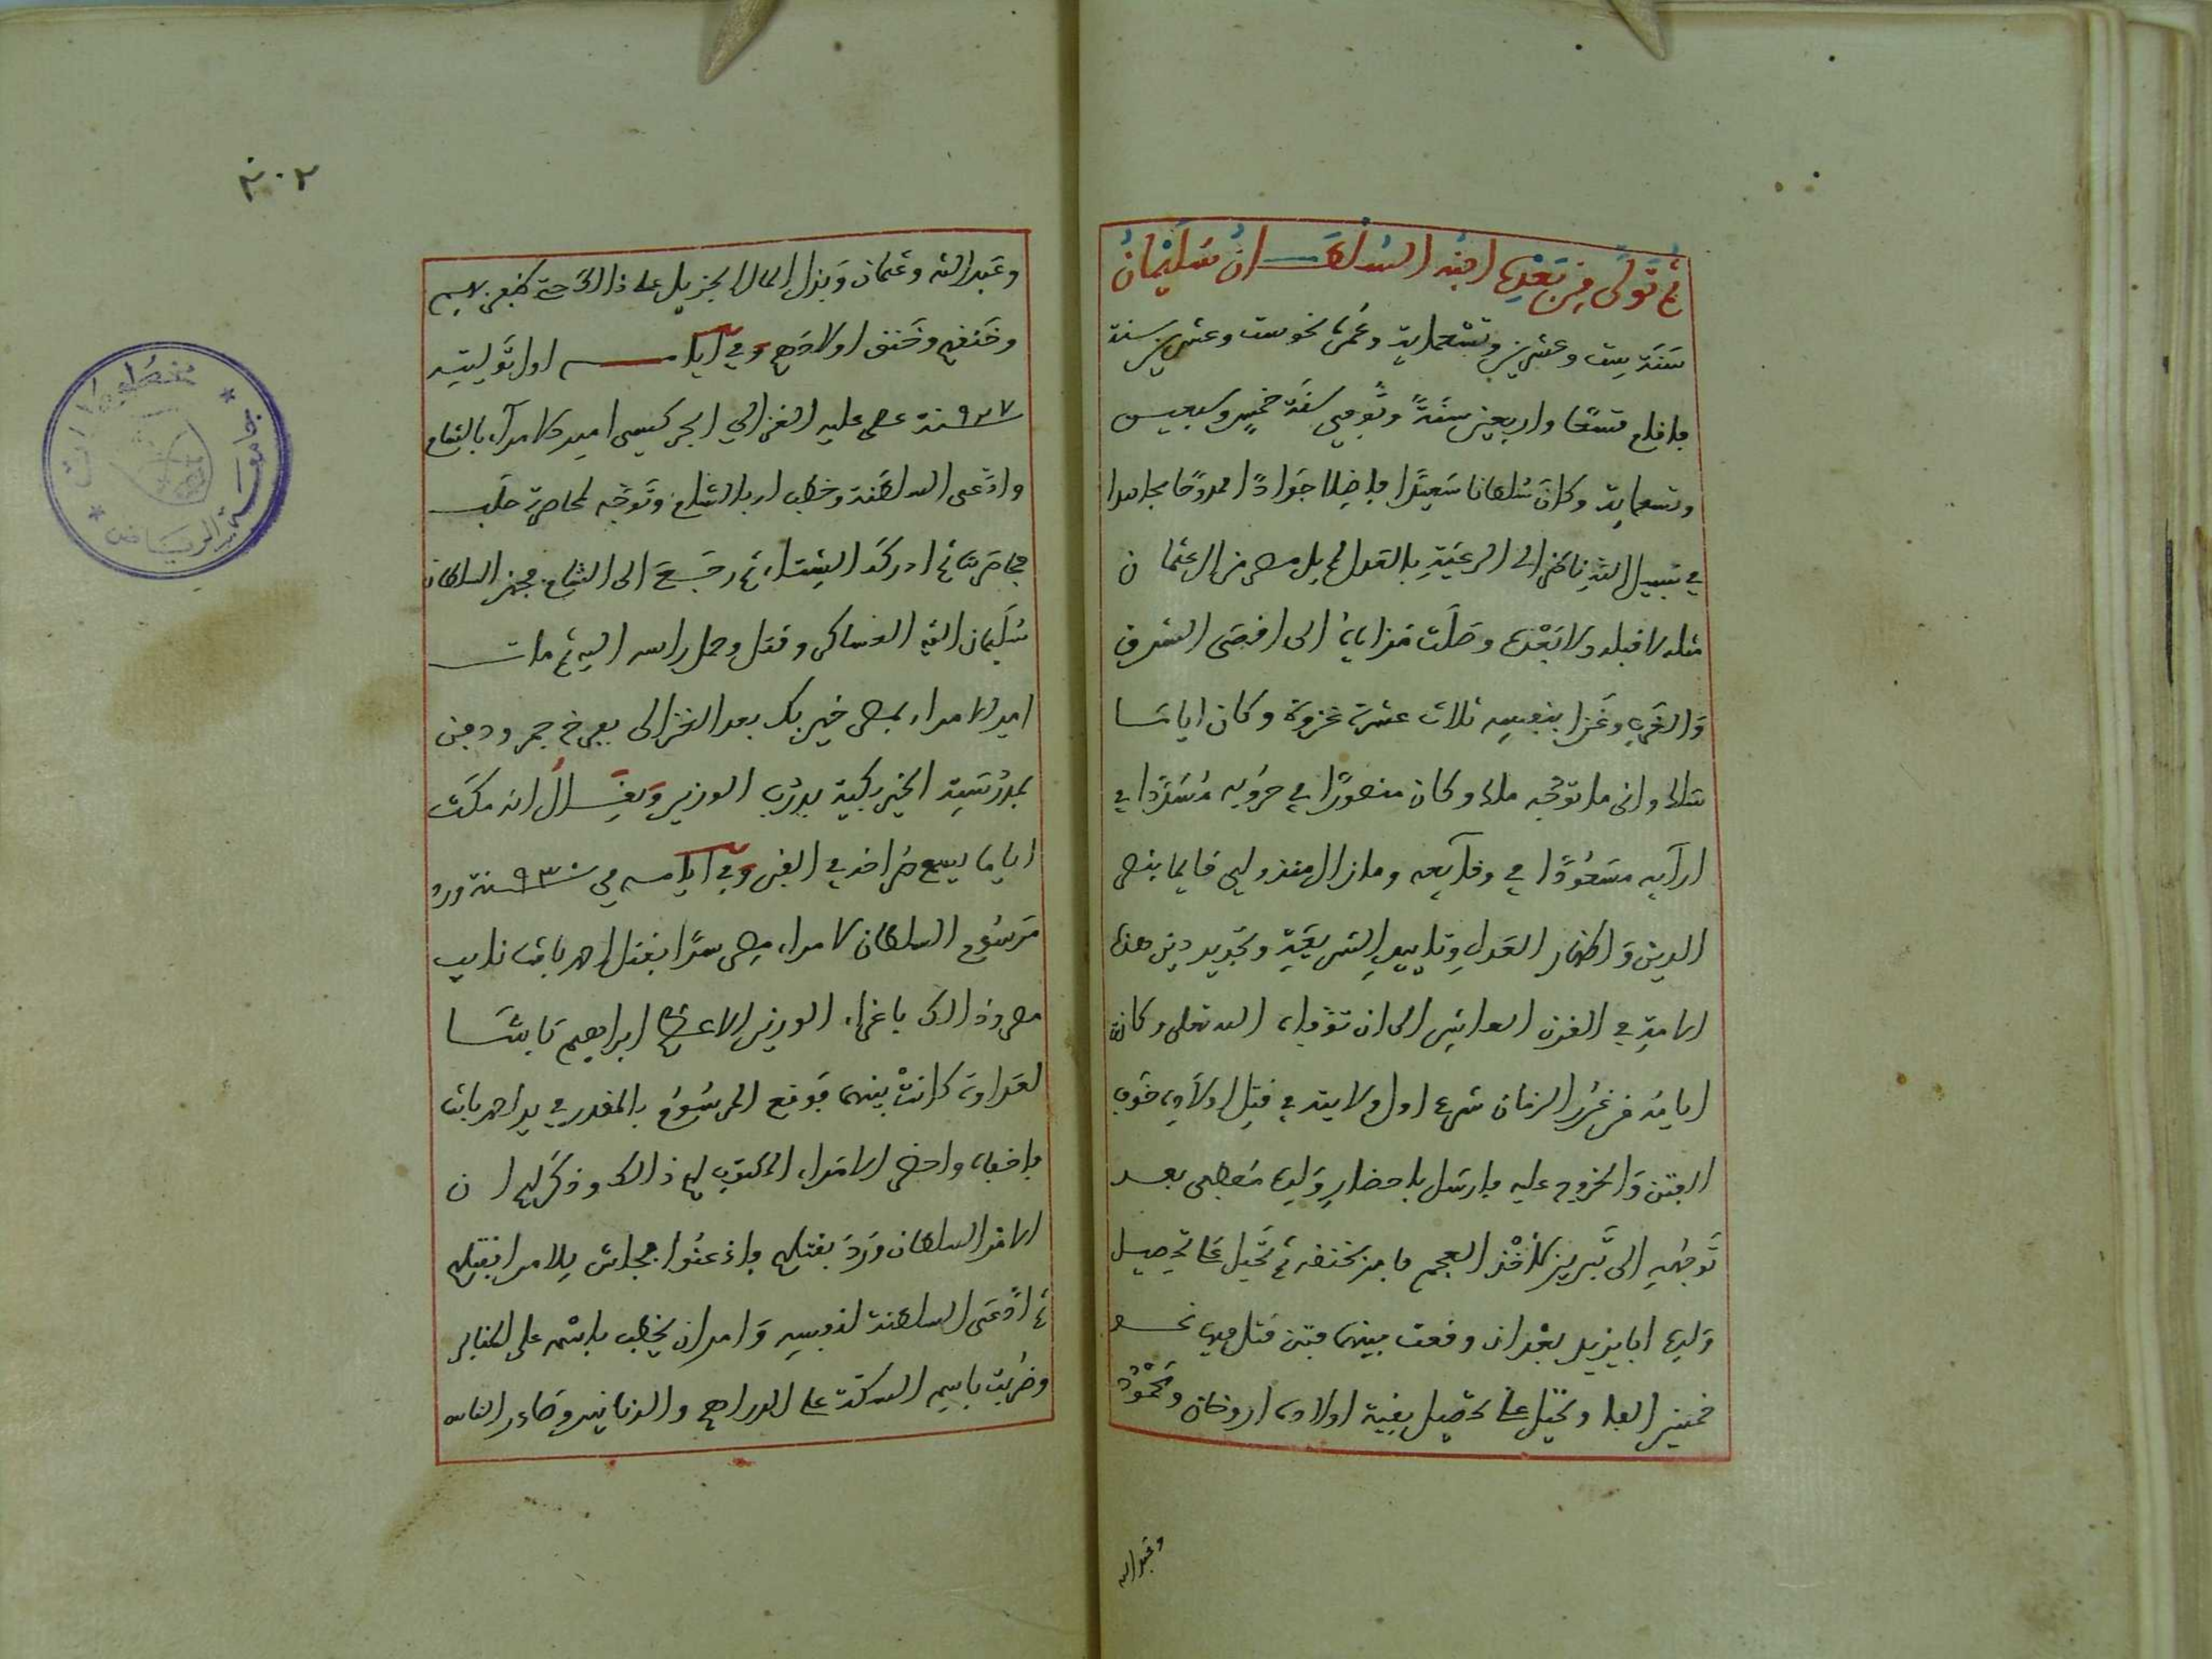 ثم تولى من بعده ابنه السلطان سليمان
سنة ست وعشرين وتسعماية وعمره نحو ست وعشرين سنة
فاقام تسعا واربعين سنة وتوفي سنة خمس وسبعين
وتسعماية وكان سلطانا سعيدا فاضلا جوادا ممدوحا مجاهدا
في سبيل الله ناظرا الى الرعية بالعدل لم يل مصر من ال عثمان
مثله لا قبله ولا بعده وصلت سراياه الى اقصى الشرق
والغرب وغزا بنفسه ثلاث عشرة غزوة وكان اياما
سلك وانى ما توجه ملك وكان منصورا في حروبه مسددا في
ارآيه مسعودا في وقايعه وما زال منذ ولي قايما بنصر
الدين واظهار العدل وتاييد الشريعة وتجديد دين هذه
الامة في القرن العاشر الى ان توفاه الله تعلى وكانت
ايامه من غرر الزمان شرع اول ولايته في قتل اولاده خوف
الفتن والخروج عليه فارسل باحضار ولده مصطفى بعد
توجهه الى تبريز لاخذ العجم فامر بخنقه ثم تحيل على تحصيل
ولده ابايزيد بعد ان وقعت بينهما فتن قتل فيها نحو
خمسين الفا وتحيل على تحصيل بقية اولاده اروخان ومحمود
وعبد الله
٢٠٢
وعبد الله وعثمان وبذل المال الجزيل على ذالك حتى ظفر بهم
وخنقهم وخنق اولادهم وفي ايامه اول توليته
سنة ٩٢٧ عصى عليه الغزالي الجركسي امير الامرآء بالشام
وادعى السلطنة وخطب له بالشام وتوجه لمحاصرة حلب
فحاصرها ثم ادركه الشتاء ثم رجع الى الشام فجهز السلطان
سليمان اليه العساكر وقتل وحمل راسه اليه ثم مات
امير الامراء بمصر خير بك بعد الغزالي بفرخ جمر ودفن
بمدرسته الخيربكية بدرب الوزير ويقال انه مكث
اياما يسمع صراخه في القبر وفي ايامه في سنة ٩٣٠ ورد
مرسوم السلطان لامراء مصر سرا بقتل احمد باشا نايب
مصر وذالك باغراء الوزير الاعظم ابراهيم باشا
لعداوة كانت بينهما فوقع المرسوم بالمقدر في يد احمد باشا
فاخفاه واحضر الامراء المكتوب لهم ذالك وذكر لهم ان
امر السلطان ورد بقتلهم فاذعنوا فجلس للامر بقتلهم
ثم ادعى السلطنة لنفسه وامر ان يخطب باسمه على المنابر
وضربت باسمه السكة على الدراهم والدنانير وصادر الناس
مخطوطات
جامعة الرياض